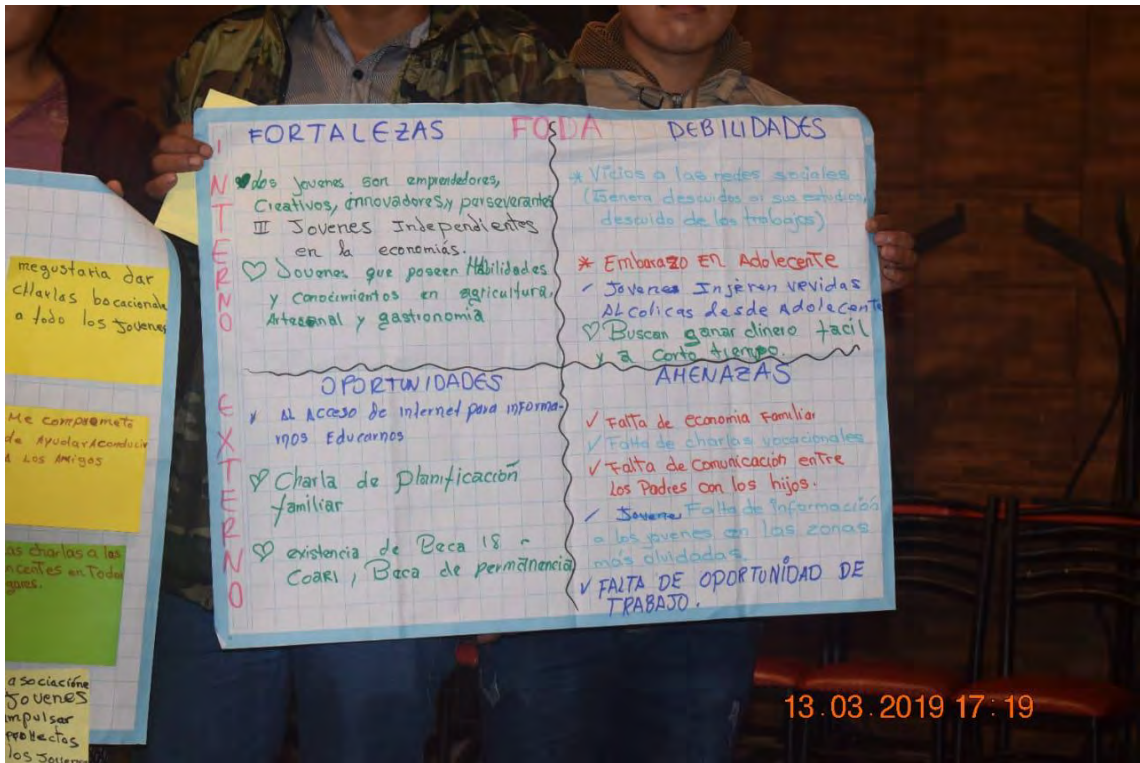 FODA
INTERNO
EXTERNO
FORTALEZAS
Los jovenes son emprendedores,
Creativos, innovadores, y perseverantes
III Jovenes Independientes
en la economiás.
Jovenes que poseen Habilidades
y conocimientos en agricultura,
Artesanal y gastronomia
DEBILIDADES
* Vicios a las redes sociales
(Genera descuidos en sus estudios,
descuido de los trabajos)
* Embarazo En Adolecente
Jovenes Injeren vevidas
ALcolicas desde Adolecente
Buscan ganar dinero facil
y a corto tiempo.
OPORTUNIDADES
AL Acceso de internet para informa-
rnos Educarnos
Charla de Planificación
familiar
existencia de Beca 18 -
COARI, Beca de permanencia
AMENAZAS
✓ Falta de economia Familiar
✓ Falta de charlas vocacionales
✓ Falta de Comunicación enTre
Los Padres con los hijos.
Falta de Información
a los jovenes en las zonas
más olvidadas.
✓ FALTA DE OPORTUNIDAD DE
TRABAJO.
megustaria dar
cHarlas bocacionale
a todo los Jovenes
Me comprometo
de AyudarAconducir
A LOS AMigos
as charlas a las
ncentes en Todos
gares.
asociacióne
Jovenes
impulsar
proyectos
los Jovene
13.03.2019 17:19